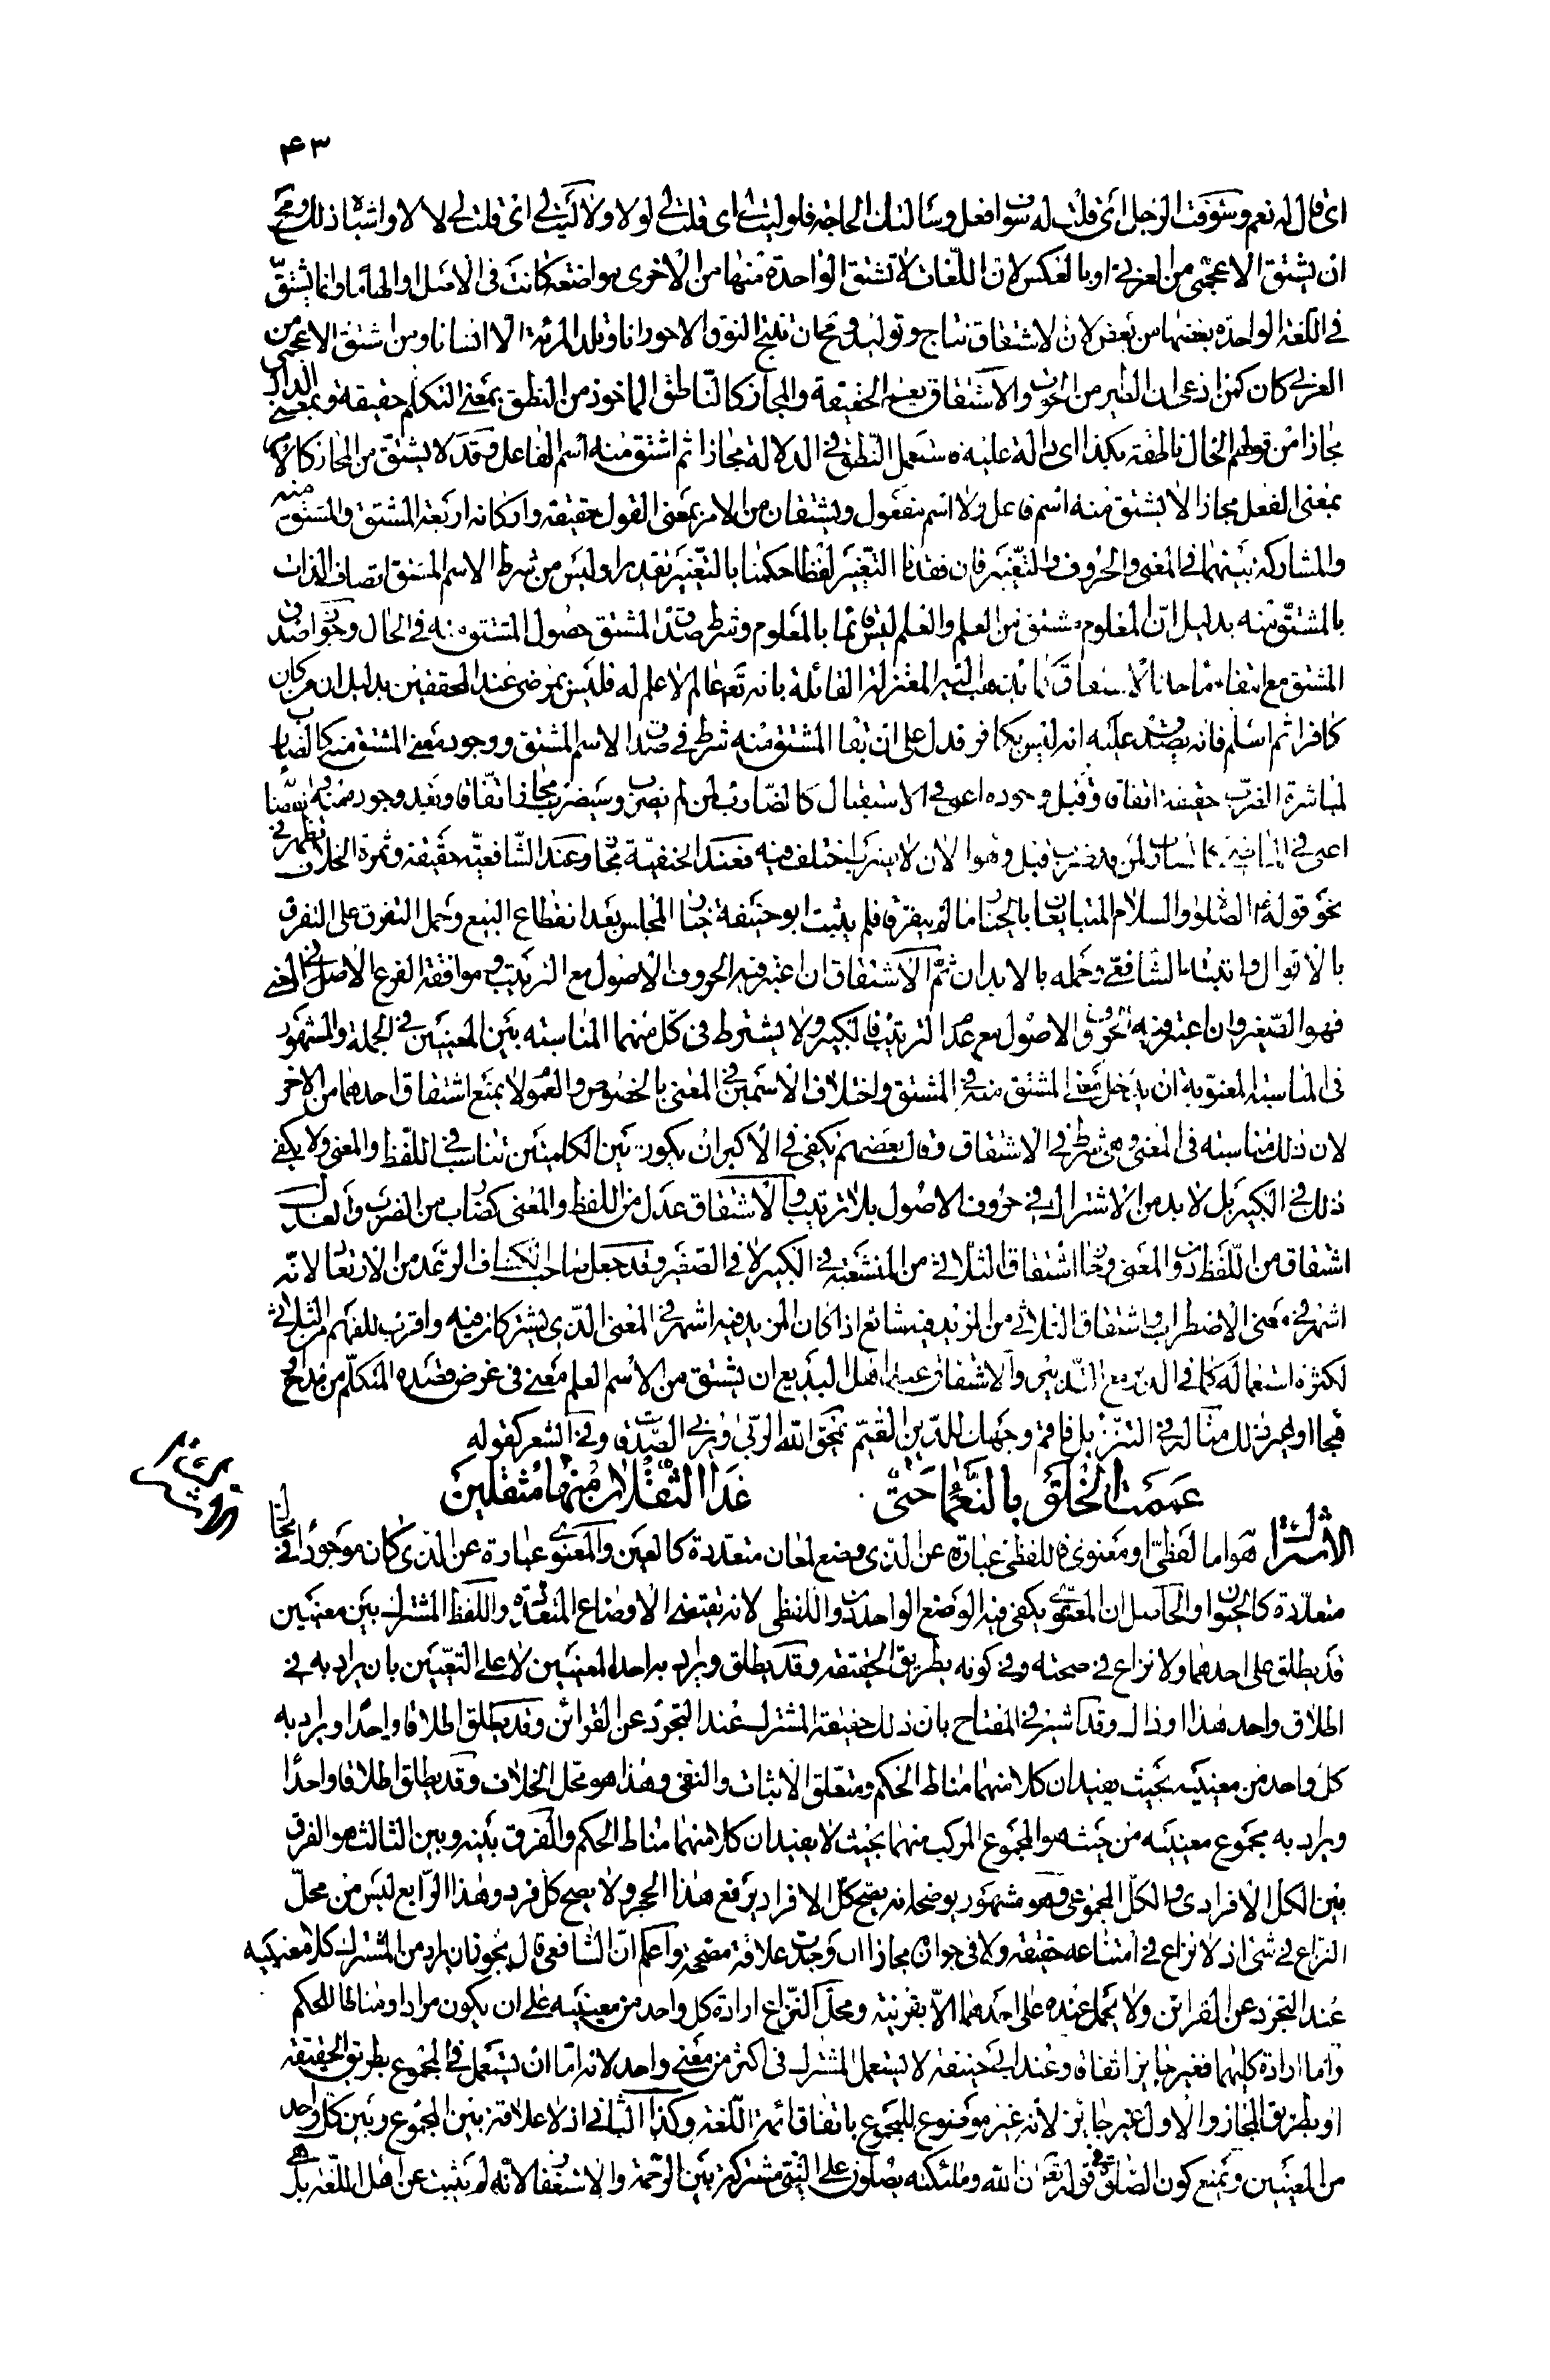 ٤٣
اى قال له نعم وسوفت الرجل اى قلت له سوف افعل وسألتك الحاجة فلوليت لى اى قلت لى لولا ولاليت لى اى قلت لى لا لا واشباه ذلك ومحال
ان يشتق الاعجمى من العربى او بالعكس لان اللغات لا تشتق الواحدة منها من الاخرى مواضعة كانت فى الاصل او الهاما وانما يشتق
فى اللغة الواحدة بعضها من بعض لان الاشتقاق نتاج وتوليد ومحال ان تنتج النوق الا حورانا وتلد المرأة الا انسانا ومن اشتق الاعجمى من
العربى كان كمن ادعى ان الطير من الحوت والاشتقاق يعم الحقيقة والمجاز كالناطق المأخوذ من النطق بمعنى التكلم حقيقة وبمعنى الدال
مجازا من قولهم الحال ناطقة بكذا اى دالة عليه فاستعمل النطق فى الدلالة مجازا ثم اشتق منه اسم الفاعل وقد لا يشتق من المجاز كالامر
بمعنى الفعل مجازا لا يشتق منه اسم فاعل ولا اسم مفعول ويشتقان من الامر بمعنى القول حقيقة واركانه اربعة المشتق والمشتق منه
والمشاركة بينهما فى المعنى والحروف والتغيير فان فقدنا التغيير لفظا حكمنا بالتغيير تقديرا وليس من شرط الاسم المشتق اتصاف الذات
بالمشتق منه بدليل ان المعلوم مشتق من العلم والعلم ليس قائما بالمعلوم وشرط صدق المشتق حصول المشتق منه فى الحال وجواز صدق
المشتق مع انتفاء مأخذ الاشتقاق كما يذهب اليه المعتزلة القائلة بانه تع عالم لا علم له فليس بمرضى عند المحققين بدليل ان من كان
كافرا ثم اسلم فانه يصدق عليه انه ليس بكافر فدل على ان بقا المشتق منه شرط فى صدق الاسم المشتق ووجود معنى المشتق منه كالضارب
لمباشرة الضرب حقيقة اتفاقا وقبل وجوده اعنى فى الاستقبال كالضارب لمن لم يضرب وسيضرب مجاز اتفاقا وبعد وجوده منه وانقضائه
اعنى فى الماضى كالضارب لمن قد ضرب قبل وهو الان لا يضرب اختلف فيه فعند الحنفية مجاز وعند الشافعية حقيقة وثمرة الخلاف تظهر فى
نحو قوله عم الصلوة والسلام المتبايعان بالخيار ما لم يتفرقا فلم يثبت ابو حنيفة خيار المجلس بعد انقطاع البيع وحمل التفرق على التفرق
بالاقوال واثبته الشافعى وحمله بالابدان ثم الاشتقاق ان اعتبر فيه الحروف الاصول مع الترتيب وموافقة الفرع الاصل فى المعنى
فهو الصغير وان اعتبر فيه الحروف الاصول مع عدم الترتيب فالكبير ولا يشترط فى كل منهما المناسبة بين المعنيين فى الجملة والمشهور
فى المناسبة المعنوية ان يدخل معنى المشتق منه فى المشتق واختلاف الاسمين فى المعنى بالخصوص والعموم لا يمنع اشتقاق احدهما من الاخر
لان ذلك مناسبة فى المعنى وهى شرط فى الاشتقاق وقال بعضهم يكفى فى الاكبر ان يكون بين الكلمتين تناسب فى اللفظ والمعنى ولا يكفى
ذلك فى الكبير بل لا بد من الاشتراك فى حروف الاصول بلا ترتيب والاشتقاق عدل من اللفظ والمعنى كضارب من الضرب والعدل
اشتقاق من اللفظ دون المعنى وجاز اشتقاق الثلاثى من المنشعبة فى الكبير لا فى الصغير وقد جعل صاحب الكشاف الرعد من الارتعاد لانه
اشهر فى معنى الاضطراب واشتقاق الثلاثى من المزيد فيه شائع اذا كان المزيد فيه اشهر فى المعنى الذى يشتركان فيه واقرب للفهم من الثلاثى
لكثرة استعماله كما فى الدبر مع التدبير والاشتقاق عند اهل البديع ان يشتق من الاسم العلم معنى فى غرض قصده المتكلم من مدح او
هجا او غير ذلك مثاله فى التنزيل فاقم وجهك للدين القيم يمحق الله الربى ويربى الصدقات وفى الشعر كقوله
عممت الخلق بالنعما حتى غدا الثقلان منها مثقلين
الاشتراك هو اما لفظى او معنوى فاللفظى عبارة عن الذى وضع لمعان متعددة كالعين والمعنوى عبارة عن الذى كان موجودا فى محال
الاشتراك
متعددة كالحيوان والحاصل ان المعنوى يكفى فيه الوضع الواحد دون اللفظى لانه يقتضى الاوضاع المتعددة واللفظ المشترك بين معنيين
قد يطلق على احدهما ولا نزاع فى صحته وفى كونه بطريق الحقيقة وقد يطلق ويراد به احد المعنيين لا على التعيين بان يراد به فى
اطلاق واحد هذا او ذاك وقد اشير فى المفتاح بان ذلك حقيقة المشترك عند التجرد عن القرائن وقد يطلق اطلاقا واحدا ويراد به
كل واحد من معنييه بحيث يفيد ان كلا منهما مناط الحكم ومتعلق الاثبات والنفى وهذا هو محل الخلاف وقد يطلق اطلاقا واحدا
ويراد به مجموع معنييه من حيث هو المجموع المركب منهما بحيث لا يفيد ان كلا منهما مناط الحكم والفرق بينه وبين الثالث هو الفرق
بين الكل الافرادى والكل المجموعى وهو مشهور يوضحه انه يصح كل الافراد يرفع هذا الحجر ولا يصح كل فرد وهذا الرابع ليس من محل
النزاع فى شئ اذ لا نزاع فى امتناعه حقيقة ولا فى جوازه مجازا ان وجدت علاقة مصححة واعلم ان الشافعى قال يجوز ان يراد من المشترك كلا معنييه
عند التجرد عن القرائن ولا يحمل عنده على احدهما الا بقرينة ومحل النزاع ارادة كل واحد من معنييه على ان يكون مرادا ومناطا للحكم
واما ارادة كليهما فغير جايز اتفاقا وعند ابى حنيفة لا يستعمل المشترك فى اكثر من معنى واحد لانه اما ان يستعمل فى المجموع بطريق الحقيقة
او بطريق المجاز والاول غير جائز لانه غير موضوع للمجموع باتفاق ائمة اللغة وكذا الثانى اذ لا علاقة بين المجموع وبين كل واحد
من المعنيين ويمنع كون الصلوة فى قوله تع ان الله وملئكته يصلون على النبى مشتركة بين الرحمة والاستغفار لانه لم يثبت عن اهل اللغة بل هى